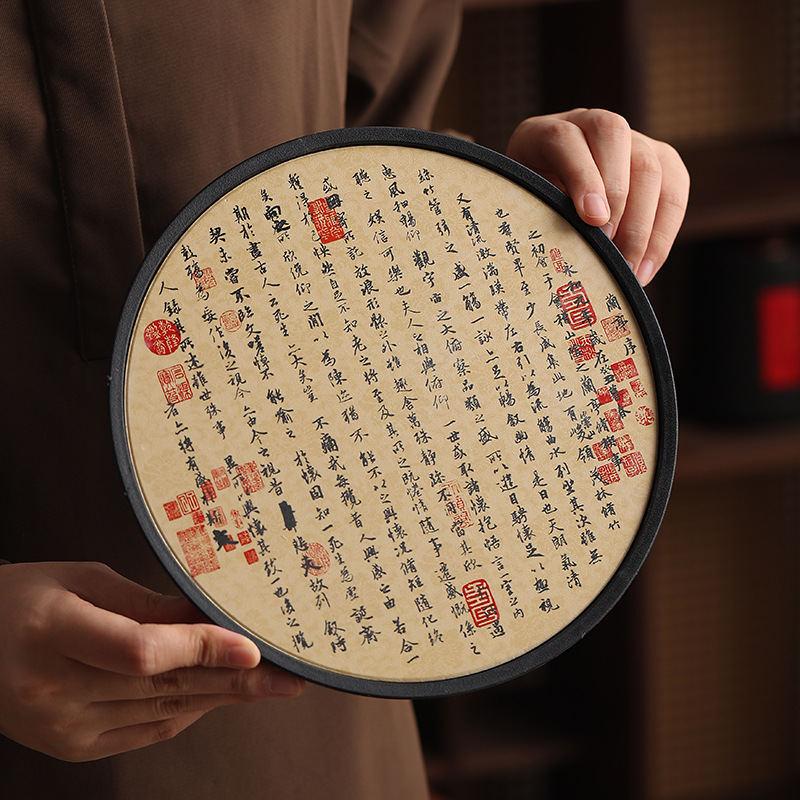 蘭亭序
永和九年歲在癸丑暮春
之初會于會稽山陰之蘭亭脩稧事
也羣賢畢至少長咸集此地有崇山峻領茂林脩竹
又有清流激湍暎帶左右引以為流觴曲水列坐其次雖無
絲竹管絃之盛一觴一詠亦足以暢敘幽情是日也天朗氣清
惠風和暢仰觀宇宙之大俯察品類之盛所以遊目騁懷足以極視
聽之娛信可樂也夫人之相與俯仰一世或取諸懷抱悟言一室之內
或因寄所託放浪形骸之外雖趣舍萬殊靜躁不同當其欣於所遇
暫得於己快然自足不知老之將至及其所之既惓情隨事遷感慨係之
矣向之所欣俛仰之間以為陳迹猶不能不以之興懷況脩短隨化終
期於盡古人云死生亦大矣豈不痛哉每攬昔人興感之由若合一
契未嘗不臨文嗟悼不能喻之於懷固知一死生為虛誕齊
彭殤為妄作後之視今亦由今之視昔悲夫故列敘時
人錄其所述雖世殊事異所以興懷其致一也後之攬
者亦將有感於斯文